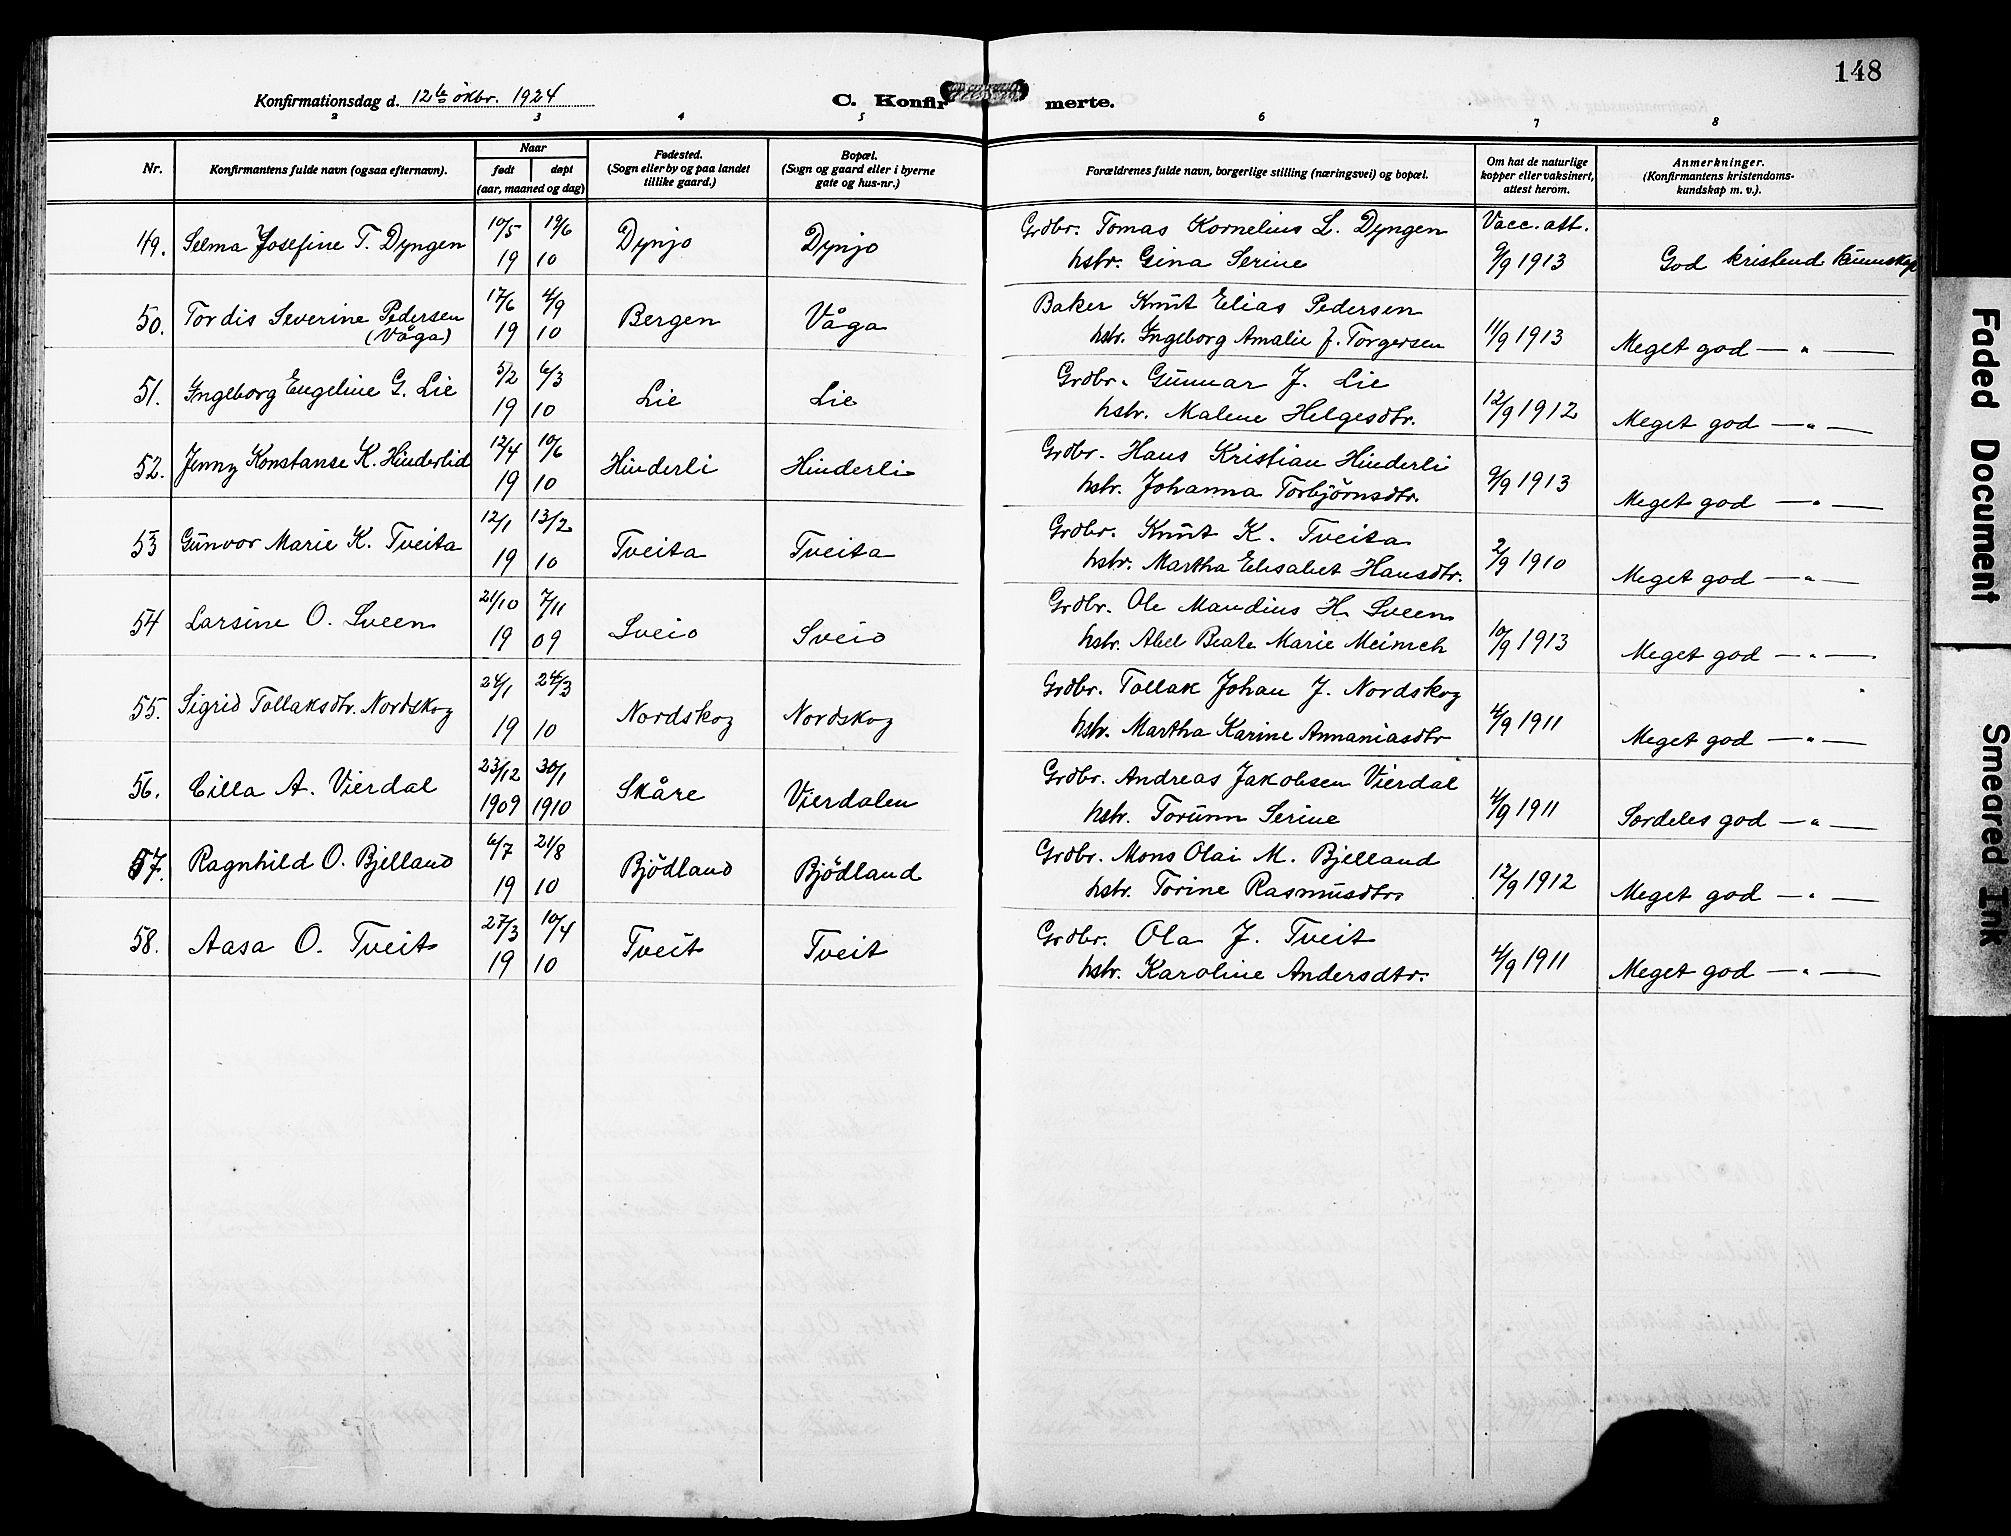 148
Konfirmationsdag d. 12te oktbr. 1924 C. Konfirmerte.
2 3 4 5 6 7 8
Nr. Konfirmantens fulde navn (ogsaa efternavn). Naar født døpt (aar, maaned og dag) Fødested. (Sogn eller by og paa landet tillike gaard.) Bopæl. (Sogn og gaard eller i byerne gate og hus-nr.) Forældrenes fulde navn, borgerlige stilling (næringsvei) og bopæl. Om hat de naturlige kopper eller vaksinert, attest herom. Anmerkninger. (Konfirmantens kristendoms-kundskap m. v.).
10/5 19/6 Grdbr. Tomas Kornelius L. Dyngen Vacc. att.
49. Selma Josefine T. Dyngen 19 10 Dynjo Dynjo hstr. Gina Serine 9/9 1913 God kristend kunnskap
17/6 4/9 Baker Knut Elias Pedersen
50. Tordis Severine Pedersen (Våga) 19 10 Bergen Våga hstr. Ingeborg Amalie f. Torgersen 11/9 1913 Meget god — " —
5/2 6/3 Grdbr. Gunnar J. Lie
51. Ingeborg Engeline G. Lie 19 10 Lie Lie hstr. Malene Helgesdtr. 12/9 1912 Meget god — " —
12/4 10/6 Grdbr. Hans Kristian Hinderli
52. Jenny Konstanse K. Hinderlid 19 10 Hinderli Hinderli hstr. Johanna Torbjørnsdtr. 9/9 1913 Meget god — " —
12/1 13/2 Grdbr. Knut K. Tveita
53 Gunvor Marie K. Tveita 19 10 Tveita Tveita hstr. Martha Elisabet Hansdtr. 2/9 1910 Meget god — " —
21/10 7/11 Grdbr. Ole Mandius H. Sveen
54 Larsine O. Sveen 19 09 Sveio Sveio hstr. Abel Beate Marie 10/9 1913 Meget god — " —
24/1 24/3 Grdbr. Tollak Johan J. Nordskog
55. Sigrid Tollaksdtr. Nordskog 19 10 Nordskog Nordskog hstr. Martha Karine Annaniasdtr 4/9 1911 Meget god — " —
23/12 30/1 Grdbr. Andreas Jakobsen Vierdal
56. Cilla A. Vierdal 1909 1910 Skåre Vierdalen hstr. Torunn Serine 4/9 1911 Særdeles god — " —
6/7 21/8 Grdbr. Mons Olai M. Bjelland
57. Ragnhild O. Bjelland 19 10 Bjödland Bjödland hstr. Torine Rasmusdtr. 12/9 1912 Meget god — " —
27/3 10/4 Grdbr. Ola J. Tveit
58. Aasa O. Tveit 19 10 Tveit Tveit hstr. Karoline Andersdtr. 4/9 1911 Meget god — " —
Faded Document
Smeared Ink